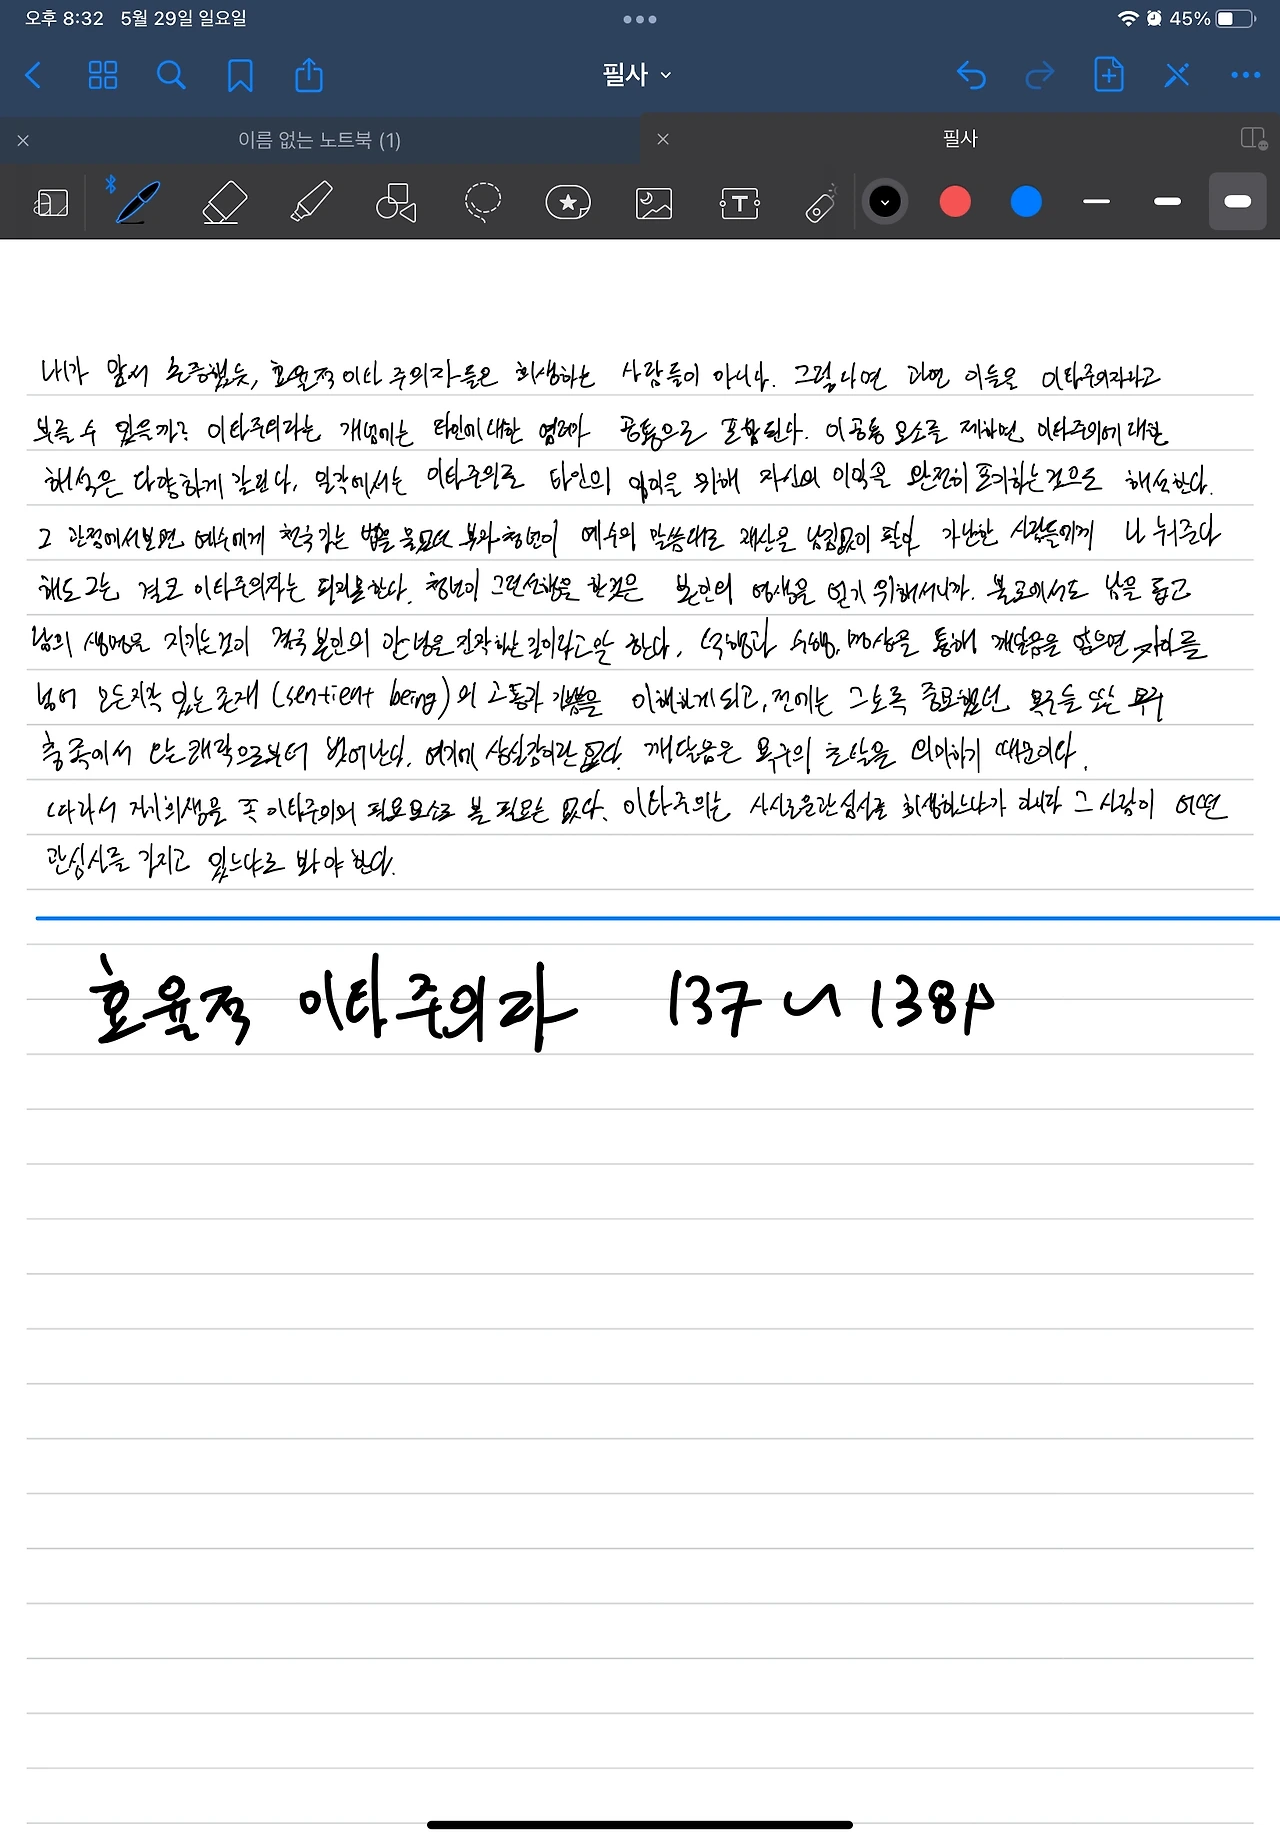 오후 8:32 5월 29일 일요일
45%
필사
이름 없는 노트북 (1)
필사
내가 앞서 논증했듯, 효율적 이타주의자들은 희생하는 사람들이 아니다. 그렇다면 과연 이들을 이타주의자라고
부를 수 있을까? 이타주의라는 개념에는 타인에 대한 염려가 공통으로 포함된다. 이 공통 요소를 제하면, 이타주의에 대한
해석은 다양하게 갈린다. 일각에서는 이타주의를 타인의 이익을 위해 자신의 이익을 완전히 포기하는 것으로 해석한다.
그 관점에서 보면 예수에게 천국 가는 법을 물었던 부자 청년이 예수의 말씀대로 재산을 남김없이 팔아 가난한 사람들에게 나눠준다
해도 그는 결코 이타주의자는 되지 못한다. 청년이 그런 선행을 한 것은 본인의 영생을 얻기 위해서니까. 불교에서도 남을 돕고
남의 생명을 지키는 것이 결국 본인의 안녕을 진작하는 길이라고 말한다. 선행과 수행, 명상을 통해 깨달음을 얻으면, 자아를
넘어 모든 지각 있는 존재 (sentient being)의 고통과 기쁨을 이해하게 되고, 전에는 그토록 중요했던 욕구들 또는 욕구
충족에서 오는 쾌락으로부터 벗어난다. 여기에 상실감이란 없다. 깨달음은 욕구의 초탈을 의미하기 때문이다.
따라서 자기희생을 꼭 이타주의의 필요 요소로 볼 필요는 없다. 이타주의는 사사로운 관심사를 희생하느냐가 아니라 그 사람이 어떤
관심사를 가지고 있느냐로 봐야 한다.
효율적 이타주의자 137~138p